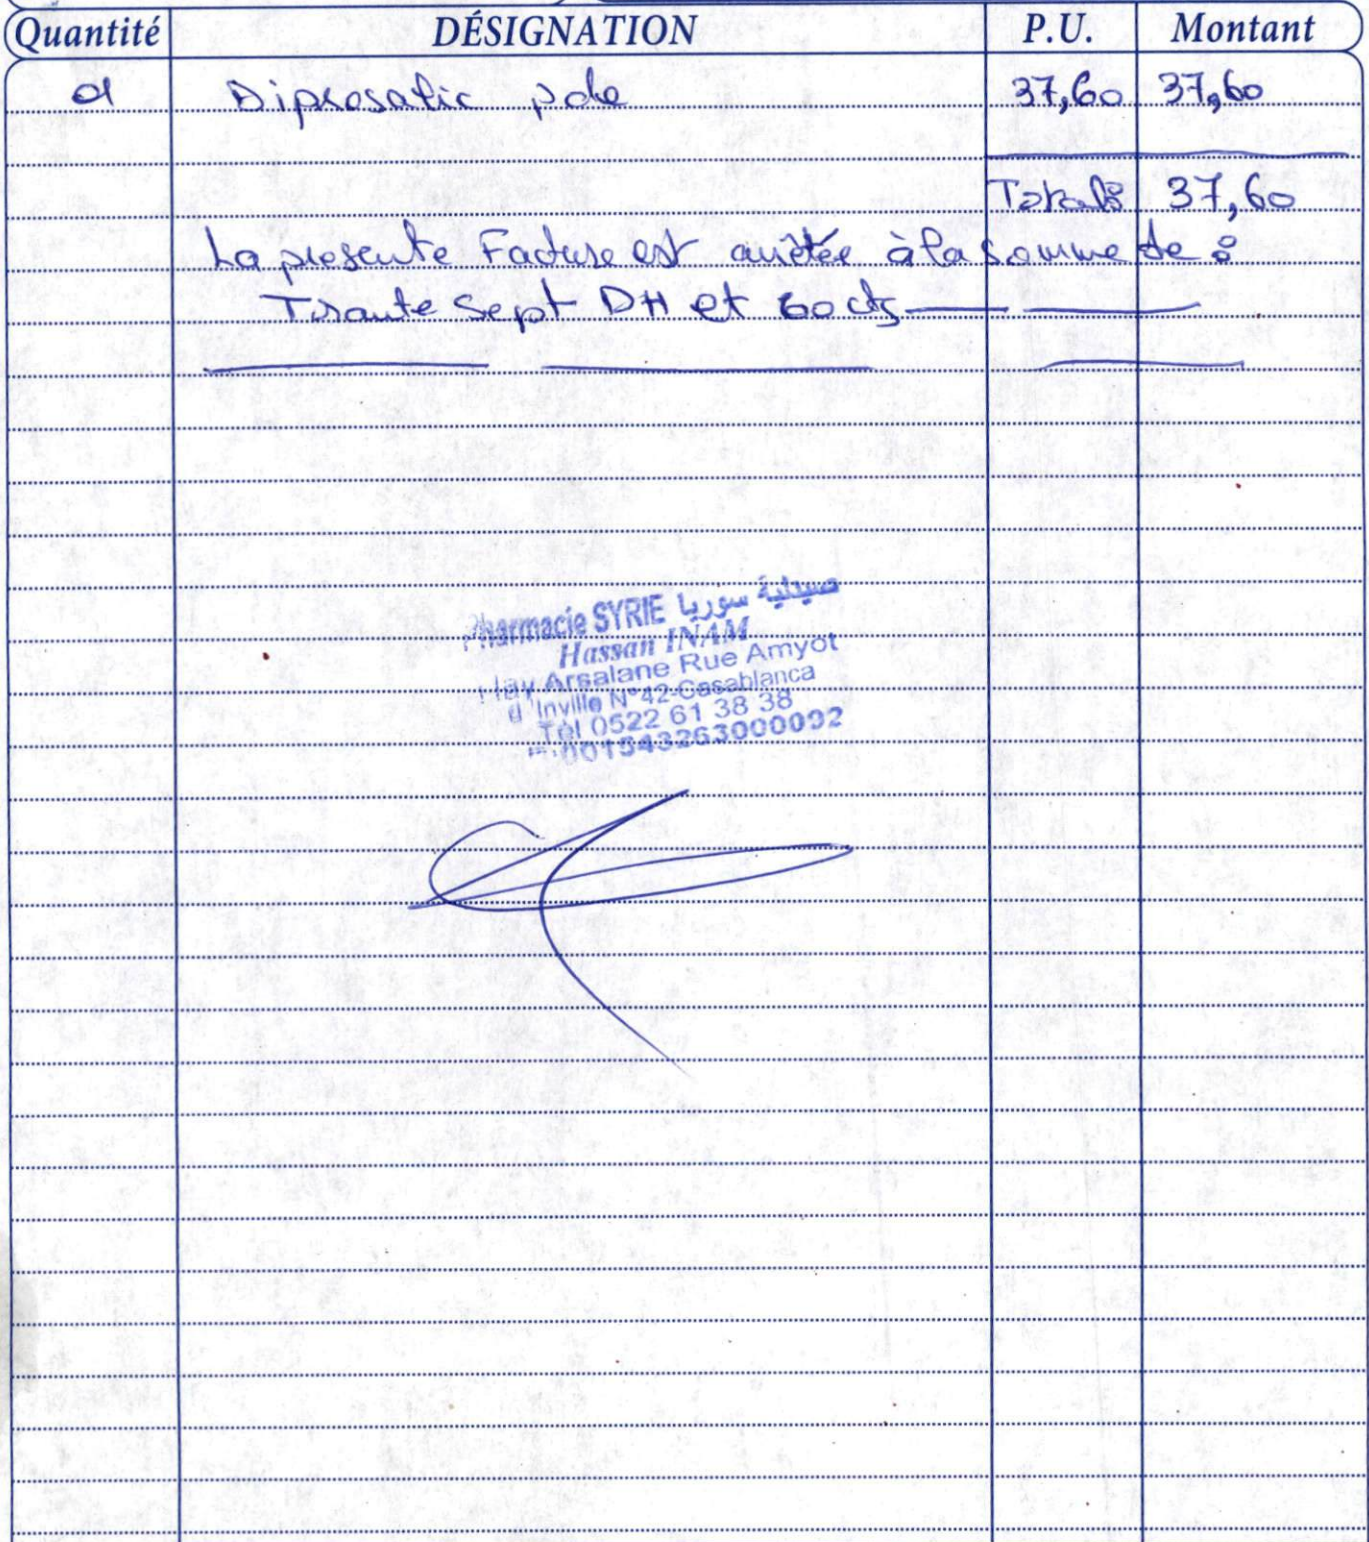 Quantité DÉSIGNATION P.U. Montant
01 Diprosalic pde 37,60 37,60
Total: 37,60
La presente Facture est arrêtée à la somme de :
Trente Sept DH et 60 cts
Pharmacie SYRIE صيدلية سوريا
Hassan INAM
Hay Arsalane Rue Amyot
d'Inville N°42-Casablanca
Tél 0522 61 38 38
001543263000092